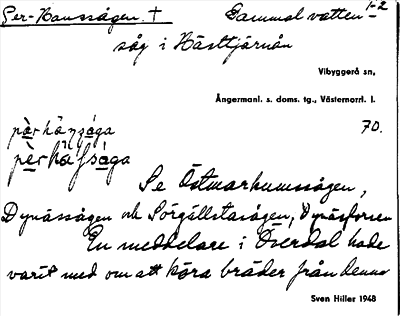 Per-Hanssågen. † Gammal vatten- 1-2
såg i Hästtjärnån
Vibyggerå sn,
Ångermanl. s. doms. tg., Västernorrl. l.
70.
pèrhànsåga
pèrhàfsåga
Se Östmarkumssågen,
Dynässågen och Sörgållstasågen, Dynäsforsen
En meddelare i Överdal hade
varit med om att köra bräder från denna
Sven Hiller 1948